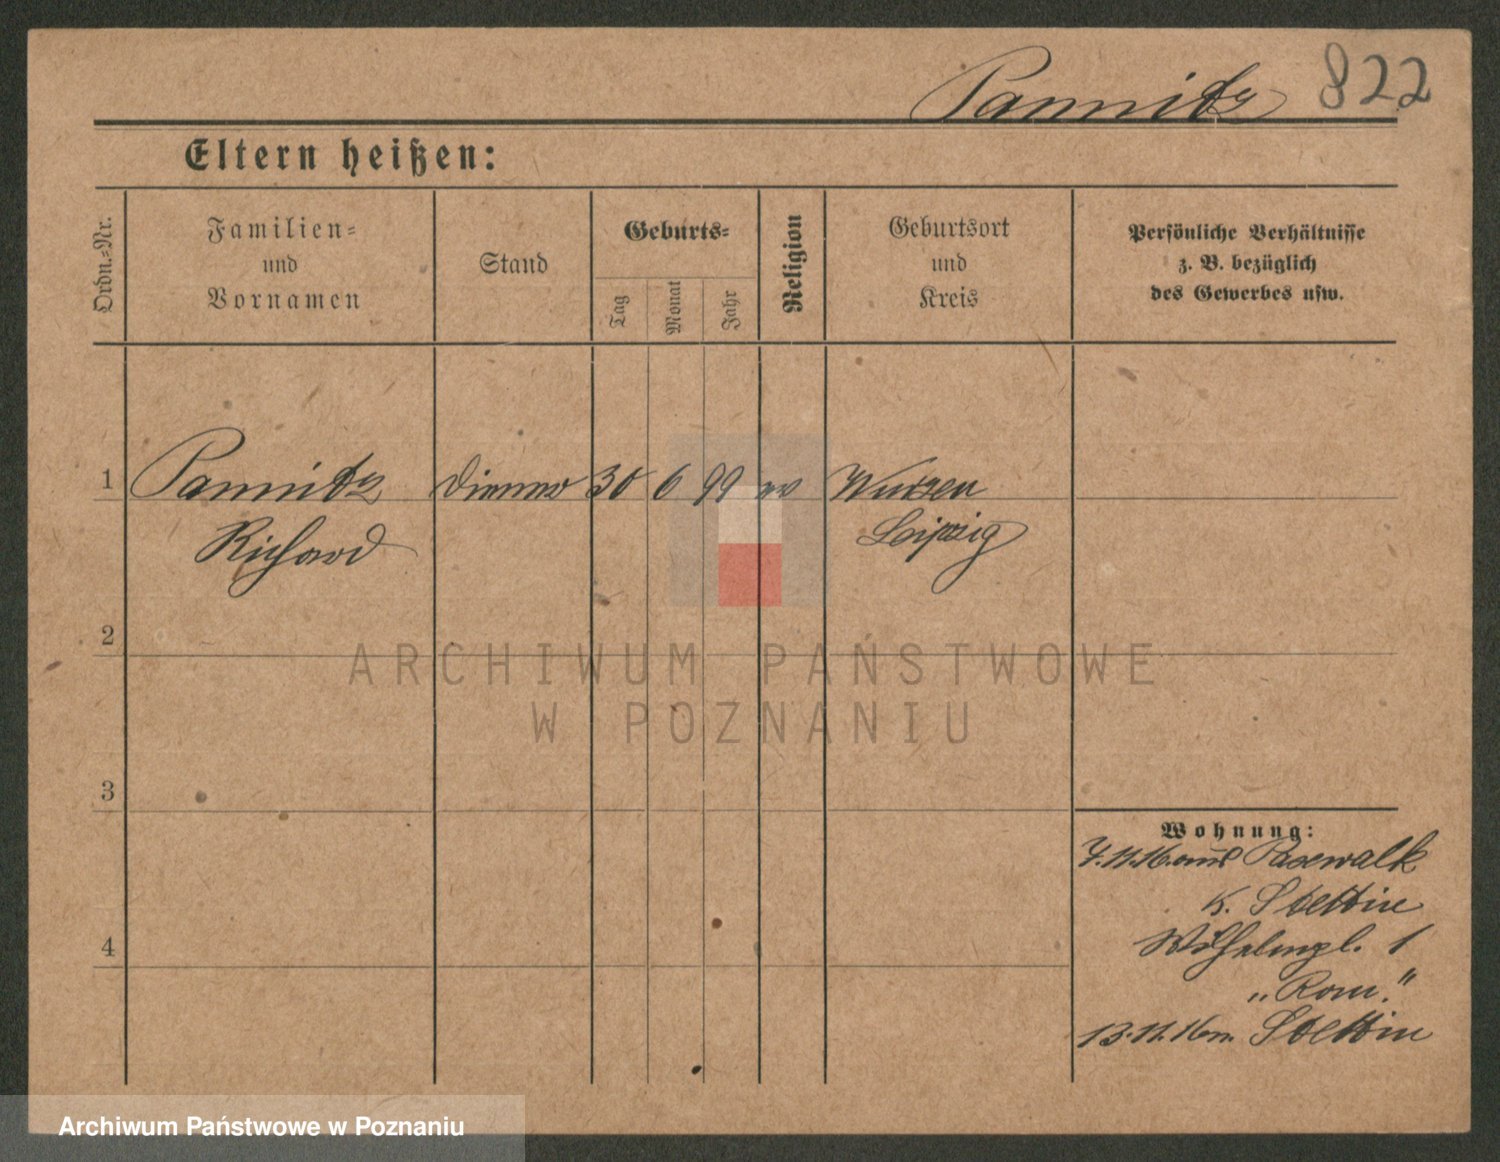 Pannitz 822
Eltern heißen:
Ordn.-Nr.
Familien-
und
Vornamen
Stand
Geburts-
Tag
Monat
Jahr
Religion
Geburtsort
und
Kreis
Persönliche Verhältnisse
z. B. bezüglich
des Gewerbes usw.
1 Pannitz Diener 30 6 99 ev Wurzen
Richard Leipzig
2
3
4
Wohnung:
7.11.16. aus Pasewalk
K. Stettin
Wilhelmpl. 1
„Rom."
13.11.16 n. Stettin
ARCHIWUM PAŃSTWOWE
W POZNANIU
Archiwum Państwowe w Poznaniu